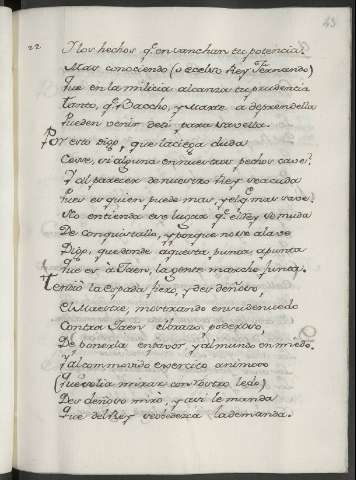 43
22 I los hechos q.e ensanchan tu potencia.
Mas conociendo (o excelso Rey Fernando)
Que en la milicia alcanza tu prudencia
Tanto, q.e Baccho, y Marte a deprendella
Pueden venir de ti para savella.
Por esto digo, que la ciega duda
Cesse, si alguna en nuestros pechos cave.
Y al parecer de nuestro Rey se acuda
Pues es quien puede mas, y el q.e mas save.
No entienda ese lugar q.e el Rey se muda
De conquistallo, y porque no se alave
Digo, que donde aquesta punta apunta
Que es à Jaen, la gente marche junta.
Tendiò la espada fiero, y des deñoso,
El Maestre, mostrando en si denuedo
Contra Jaen el brazo poderoso,
De ponerla en pavor, y al mundo en miedo.
Y al commovido exercito animoso
(Que solia mirar con rostro ledo)
Des deñoso mirò, y assi le manda
Que del Rey se obedezca la demanda.